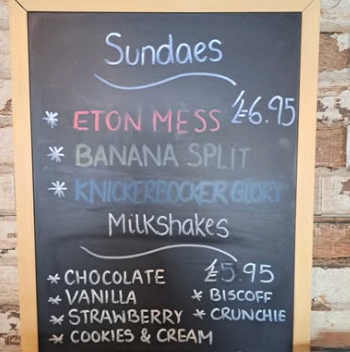 Sundaes
* ETON MESS £6.95
* BANANA SPLIT
* KNICKERBOCKER GLORY
Milkshakes
* CHOCOLATE £5.95
* VANILLA * BISCOFF
* STRAWBERRY * CRUNCHIE
* COOKIES & CREAM